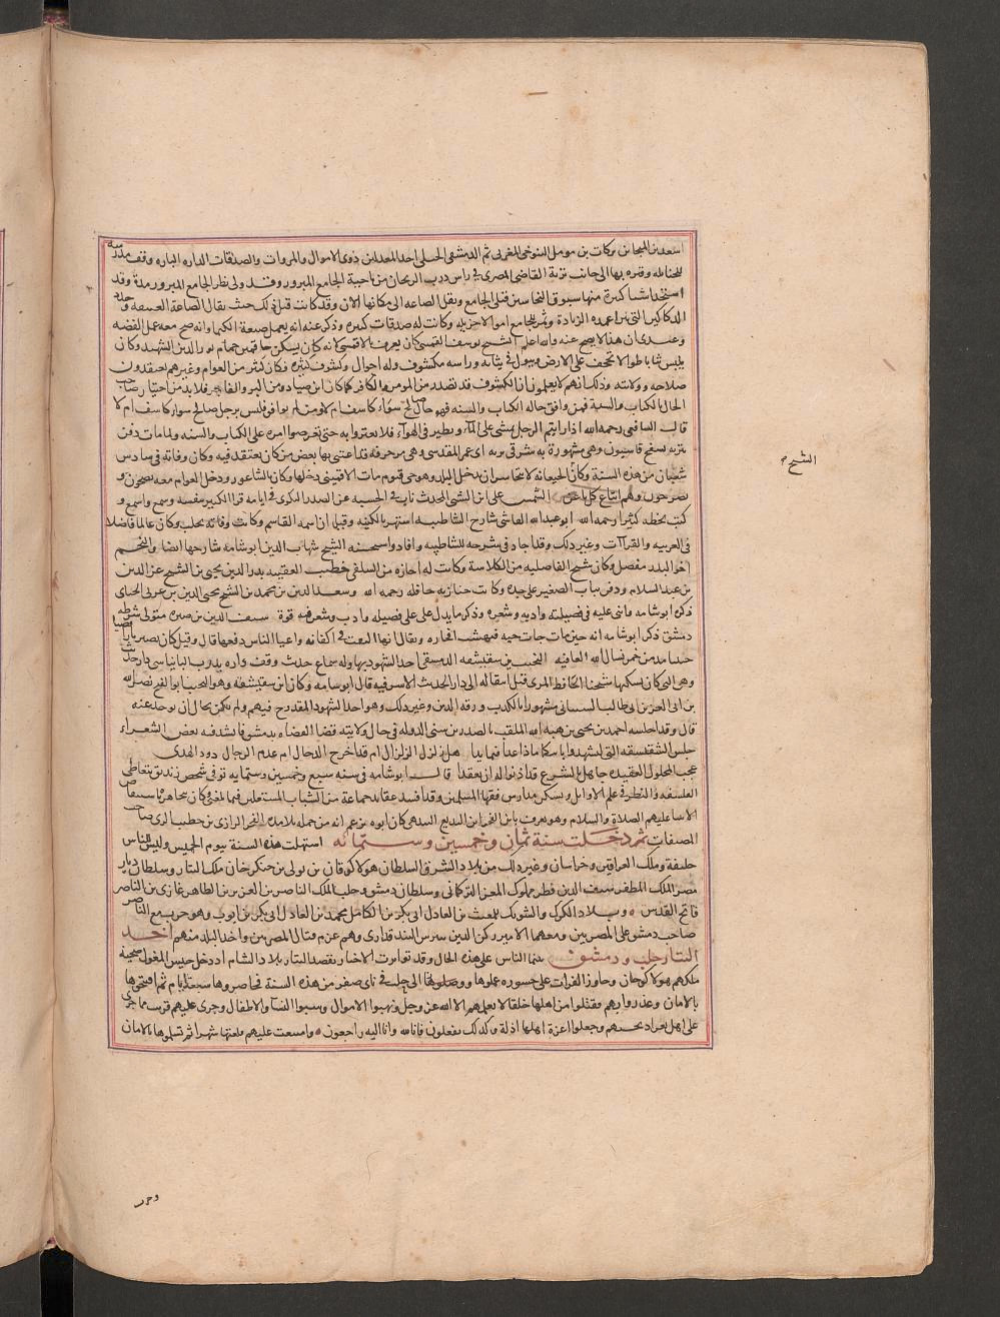 اسعد بن المنجا بن بركات بن مومل التنوخي المغربي ثم الدمشقي الحنبلي احد المعدلين ذوى الاموال والمروات والصدقات الداره الباره وقف مدرسه
للحنابله وقبره بها الى جانب تربة القاضي المصري في راس درب الريحان من ناحية الجامع المبرور وقد ولى نظر الجامع المبرور مدة وقد
استجد اشيا كثيرة منها سوق النحاسين قبلي الجامع ونقل الصاغه الى مكانها الان وقد كانت قبل ذلك حيث يقال الصاغة العتيقه وجدد
الدكاكين التي بين اعمده الزيادة وثمر للجامع اموالا جزيله وكانت له صدقات كثيره وذكر عنه انه يعمل صنعة الكيميا وانه صح معه عمل الفضه
وعندى ان هذا لا يصح عنه والله اعلم الشيخ يوسف القميني كان يعرف بالاقميني لانه كان يسكن حاقمين حمام نور الدين الشهيد وكان
يلبس ثيابا طوالا تحف على الارض ويبول في ثيابه وراسه مكشوف وله احوال وكشوف كثيره وكان كثير من العوام وغيرهم يعتقدون
صلاحه وولايته وذلك انهم لا يعلمون ان الكشوف قد تصدر من المومن والكافر كما كان ابن صياد ومن البر والفاجر فلا بد من اختبار صاحب
الحال بالكتاب والسنة فمن وافق حاله الكتاب والسنه فهو حال صالح سواء كاشف ام لا ومن لم يوافق فليس برجل صالح سوا كاشف ام لا
قال الشافعى رحمه الله اذا رايتم الرجل يمشى على الماء ويطير في الهواء فلا تغتروا به حتى تعرضوا امره على الكتاب والسنه ولما مات دفن
بتربه بسفح قاسيون وهي مشهورة به شرقي تربه ابى عمر المقدسي وهى مزخرفه قد اعتنى بها بعض من كان يعتقد فيه وكان وفاته في سادس
الشيخ
شعبان من هذه السنة وكان الجيعانه لا يتجاسر ان يدخل البلد وهو حي فيوم مات الاقميني دخلها وكان الشاغور ودخل العوام معه يصيحون و
يصرخون وهم اتباع كل ناعق الشمس على ابن النشبي المحدث ناب في الحسبه عن الصدر البكرى في ايامه قرا الكثير بنفسه وسمع واسمع و
كتب بخطه كثيرا رحمه الله ابو عبد الله الفاسي شارح الشاطبيه اشتهر بالكنيه وقيل ان اسمه القاسم وكانت وفاته بحلب وكان عالما فاضلا
في العربيه والقراآت وغير ذلك وقد اجاد في شرحه للشاطبيه وافاد واستحسنه الشيخ شهاب الدين ابو شامه شارحها ايضا والنجم
اخو البدر مفضل وكان شيخ الفاضليه من الكلاسة وكانت له اجازه من السلفي خطيب العقيبه بدر الدين يحيى بن الشيخ عز الدين
بن عبد السلام ودفن بباب الصغير على جده وكانت جنازته حافله رحمه الله وسعد الدين بن محمد بن الشيخ محيى الدين بن عربى الحنبلى
ذكره ابو شامه واثنى عليه في فضيلته وادبه وشعره وذكر ما يدل على على فضيله وادب وشعر فيه قوة سيف الدين بن صبره متولى شرطه
دمشق ذكر ابو شامه انه حين مات جات حيه فنهشت افخاذه ويقال انها التفت في اكفانه واعيا الناس دفعها قال وقيل كان نصيريا رافضيا
خبيثا مدمن خمر نسال الله العافيه النجيب بن شقيشقه الدمشقي احد الشهود بها وله سماع حديث ووقف داره بدرب البانياسي دار حديث
وهى التي كان يسكنها شيخنا الحافظ المزي قبل انتقاله الى دار الحديث الاشرفيه قال ابو شامه وكان ابن شقيشقه وهو النجيب ابو الفتح نصر الله
بن ابى العز بن ابى طالب الشيباني مشهورا بالكذب ورقه الدين وغير ذلك وهو احد الشهود المقدوح فيهم ولم يكن بحال ان يوخذ عنه
قال وقد اجلسه احمد بن يحيى بن هبه الله الملقب بالصدر بن سنى الدوله في حال ولايته قضا القضاه بدمشق فانشد فيه بعض الشعراء
جلس الشقيشقه الشقى ليشهدوا باسكا ما ذا عدا فيما بدا هل زلزل الزلزال ام قد اخرج الدجال ام عدم الرجال ذوو الهدى
عجبا لمحلول العقيده جاهل بالشرع قد اذنوا له ان يعقدا قال ابو شامه في سنه سبع وخمسين وستمايه توفي شخص زنديق يتعاطى
الفلسفه والنظر في علم الاوايل ويسكن مدارس فقها المسلمين وقد افسد عقايد جماعة من الشباب المشتغلين فيما بلغني وكان يتجاهر باستنقاص
الانبيا عليهم الصلاة والسلام وهو يعرف بابن الفخر ابن البديع البندهى كان ابوه يزعم انه من جمله تلامذه الفخر الرازى بن خطيب الرى صاحب
المصنفات ثم دخلت سنة ثمان وخمسين وستمائه استهلت هذه السنة بيوم الخميس وليس للناس
خليفة وملك العراقين وخراسان وغير ذلك من بلاد الشرق السلطان هولاكو قان بن تولى بن جنكز خان ملك التتار وسلطان ديار
مصر الملك المظفر سيف الدين قطز مملوك المعز التركمانى وسلطان دمشق وحلب الملك الناصر بن العزيز بن الظاهر غازى بن الناصر
فاتح القدس وبلاد الكرك والشوبك للمغيث بن العادل ابى بكر بن الكامل محمد بن العادل ابى بكر بن ايوب وهو حرب مع الناصر
صاحب دمشق على المصريين ومعهما الامير ركن الدين بيبرس البندقدارى وهم عزم قتال المصريين واخذ البلد منهم اخذ
التتار حلب ودمشق بينما الناس على هذه الحال وقد تواترت الاخبار بقصد التتار بلاد الشام اذ دخل جيش المغول صحبة
ملكهم هولاكو خان وجاوز الفرات على جسوره عملوها ووصلوا الى حلب في ثاني صفر من هذه السنة فحاصروها سبعة ايام ثم افتتحوها
بالامان وغدروا بهم وقتلوا من اهلها خلقا لا يعلمهم الا الله عز وجل ونهبوا الاموال وسبوا النساء والاطفال وجرى عليهم قريب مما جرى
على اهل بغداد بحسبهم وجعلوا اعزة اهلها اذلة وكذلك يفعلون فانا لله وانا اليه راجعون وامتنعت عليهم قلعتها شهرا ثم تسلموها بالامان